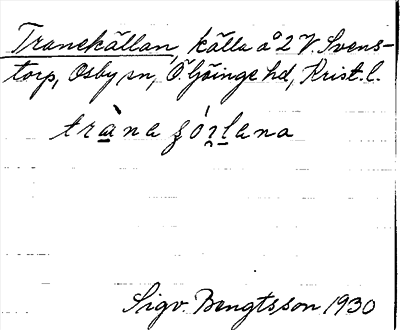 Tranekällan, källa å 2 V. Svens-
torp, Osby sn, Ö. Göinge hd, Krist. l.
tràna
Sigv. Bengtsson 1930